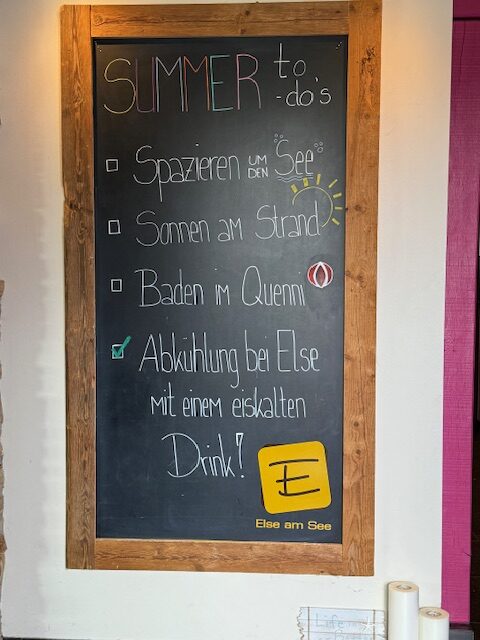 SUMMER to
-do's
Spazieren UM DEN "See"
Sonnen am Strand
Baden im Quenni
Abkühlung bei Else
mit einem eiskalten
Drink!
E
Else am See
Life